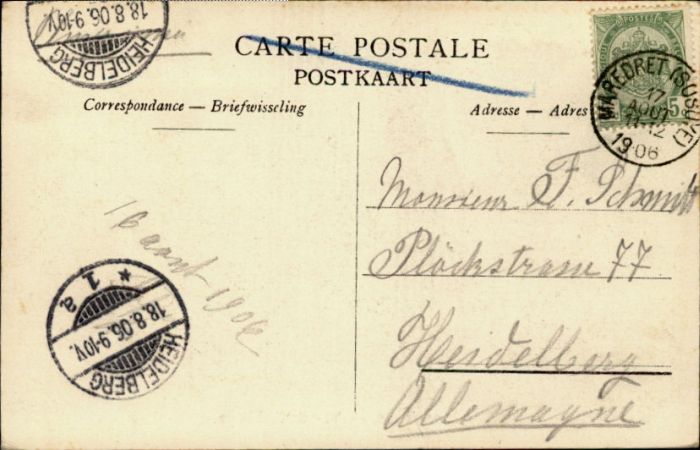 18.8.06.9-10V.
HEIDELBERG
CARTE POSTALE
POSTKAART
Correspondance — Briefwisseling
Adresse — Adres
MAREDRET (SOSOYE)
17
AOUT
11-12
1906
5
Monsieur F. Schmitt
Plöckstrasse 77
Heidelberg
Allemagne
16 aout 1906
* 1 a
18.8.06.9-10V.
HEIDELBERG